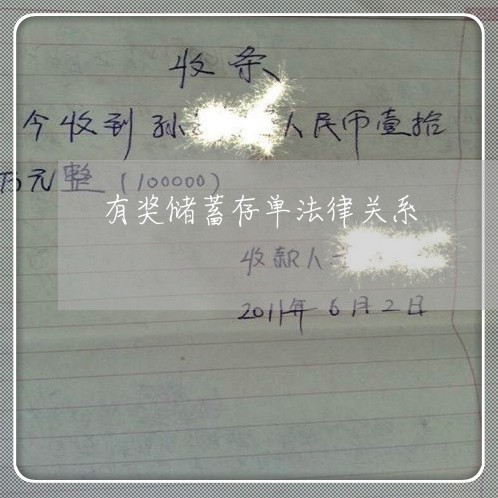 收条
今收到孙 人民币壹拾
万元整（100000）
有奖储蓄存单法律关系
收款人
2011年6月2日